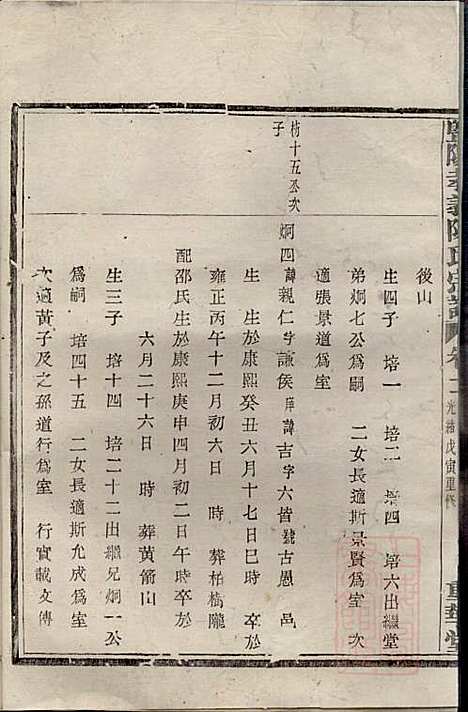 暨陽孝義陳氏宗譜 卷二 光緒戊寅重修 重華堂
後山
生四子 培一 培二 培四 培六出繼堂
弟炯七公爲嗣 二女長適斯景賢爲室 次
適張景道爲室
枋十五公次子
炯四諱親仁字謙侯庠諱吉字六皆號古愚 邑
生 生於康熙癸丑六月十七日巳時 卒於
雍正丙午十二月初六日 時 葬柏樹隴
配邵氏生於康熙庚申四月初二日午時卒於
六月二十六日 時 葬黄箭山
生三子 培十四 培二十二出繼兄炯一公
爲嗣 培四十五 二女長適斯允成爲室
次適黄子及之孫道行爲室 行實載文傳